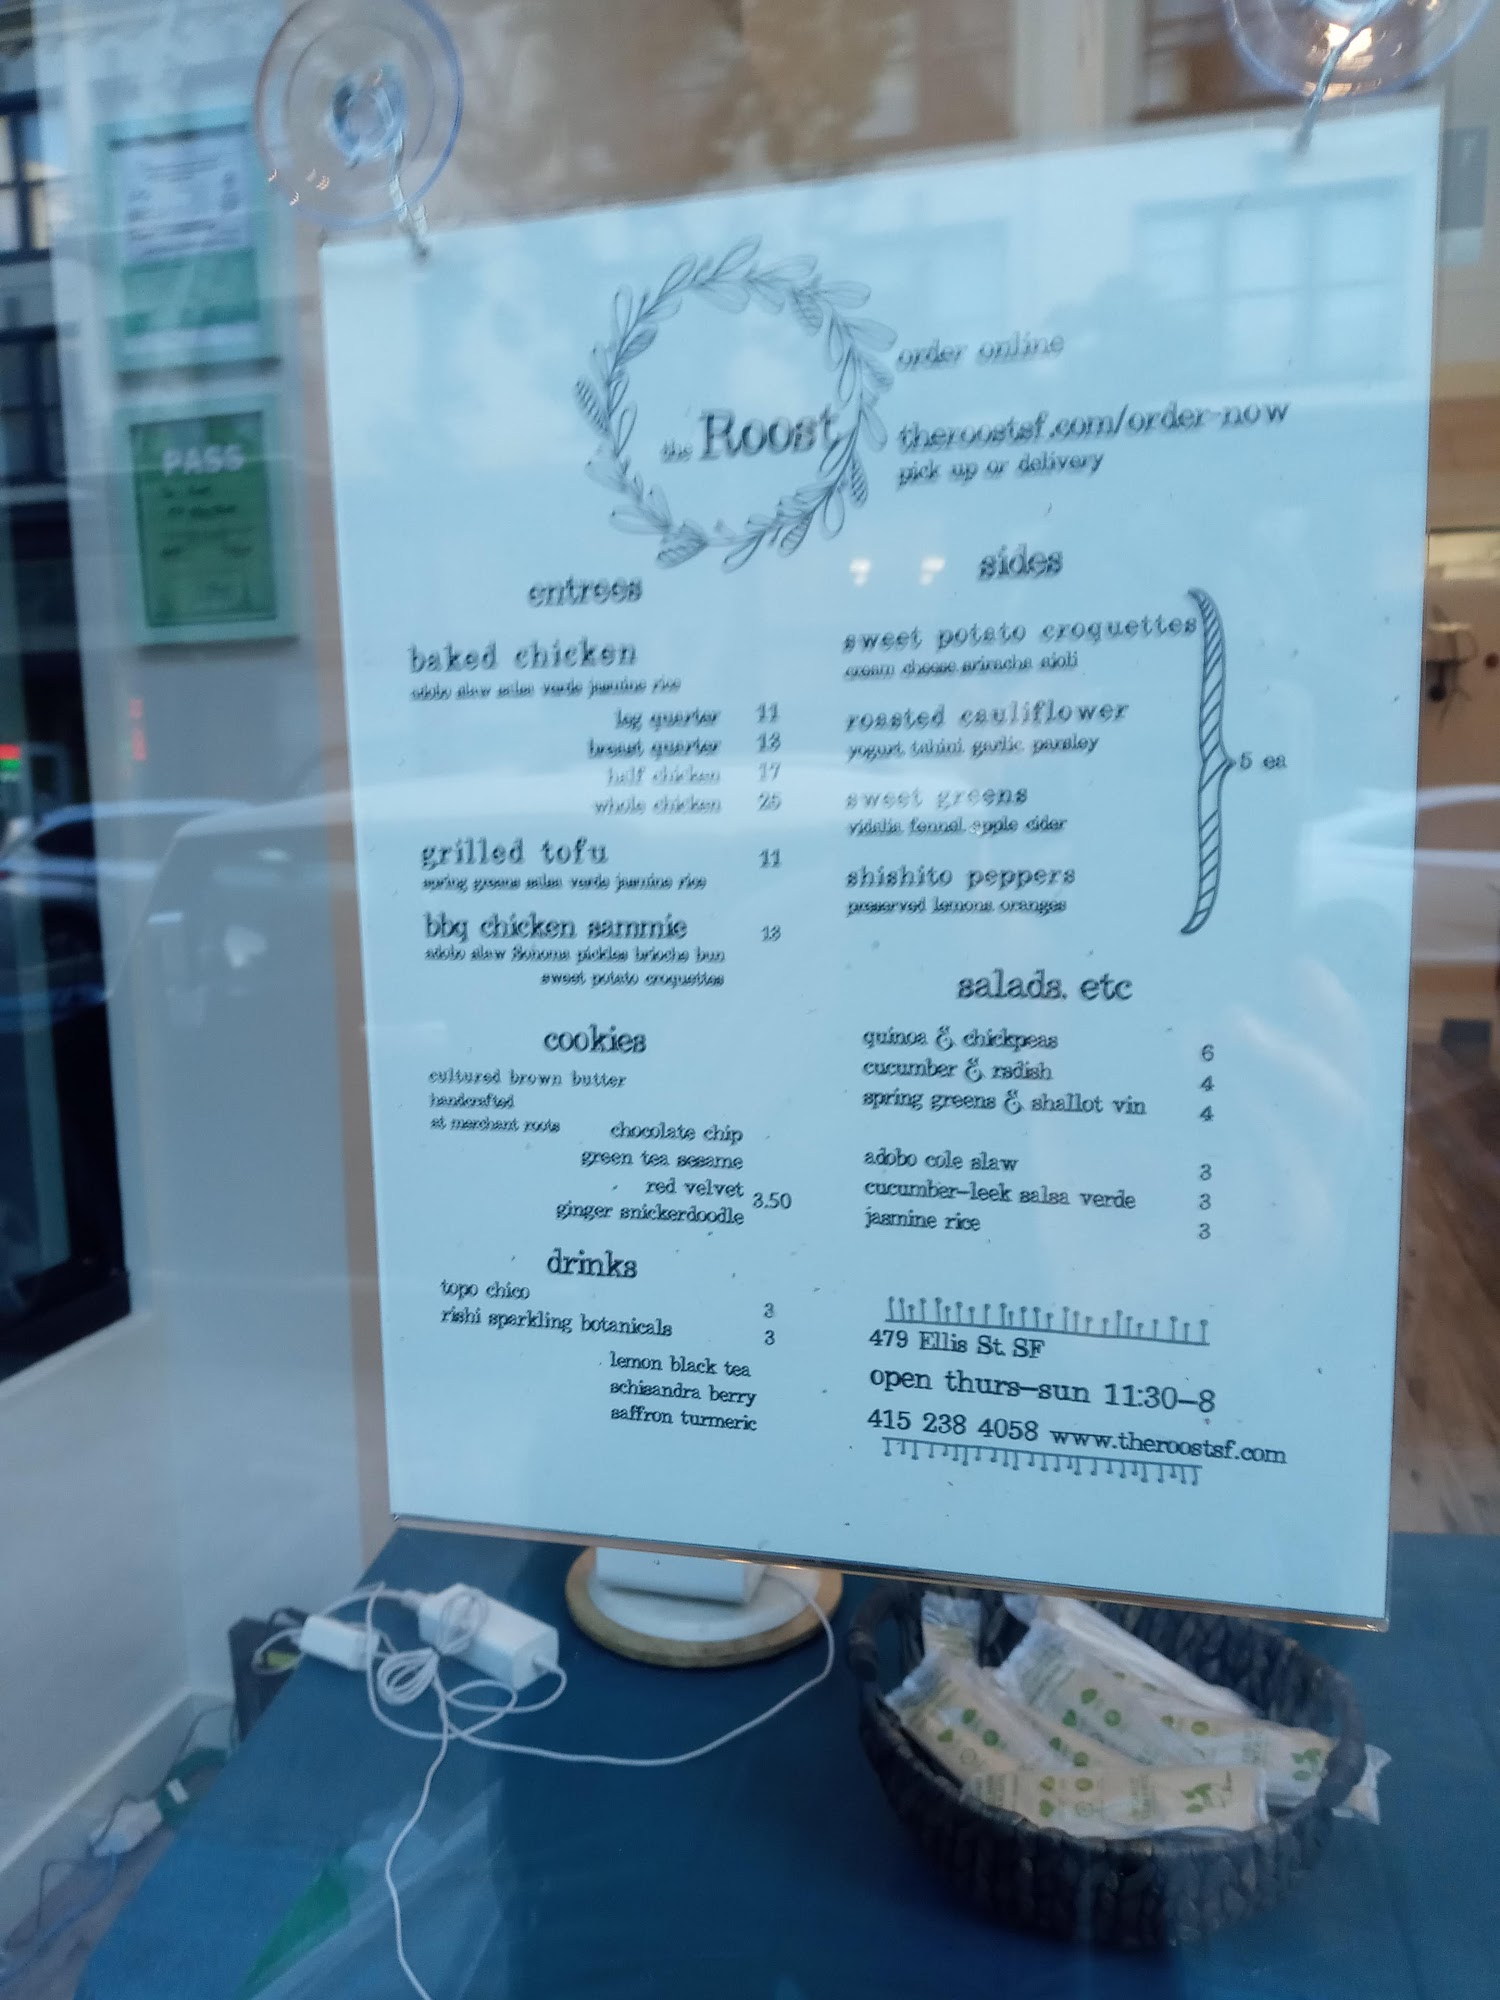 PASS
the Roost
order online
theroostsf.com/order-now
pick up or delivery
entrees
baked chicken
adobo slaw salsa verde jasmine rice
leg quarter 11
breast quarter 13
half chicken 17
whole chicken 25
grilled tofu 11
spring greens salsa verde jasmine rice
bbq chicken sammie 13
adobo slaw Sonoma pickles brioche bun
sweet potato croquettes
cookies
cultured brown butter
handcrafted
at merchant roots
chocolate chip
green tea sesame
red velvet 3.50
ginger snickerdoodle
drinks
topo chico 3
rishi sparkling botanicals 3
lemon black tea
schisandra berry
saffron turmeric
sides
sweet potato croquettes
cream cheese sriracha aioli
roasted cauliflower
yogurt, tahini, garlic, parsley
5 ea
sweet greens
vidalia, fennel, apple cider
shishito peppers
preserved lemons, oranges
salads, etc
quinoa & chickpeas 6
cucumber & radish 4
spring greens & shallot vin 4
adobo cole slaw 3
cucumber-leek salsa verde 3
jasmine rice 3
479 Ellis St. SF
open thurs-sun 11:30-8
415 238 4058 www.theroostsf.com